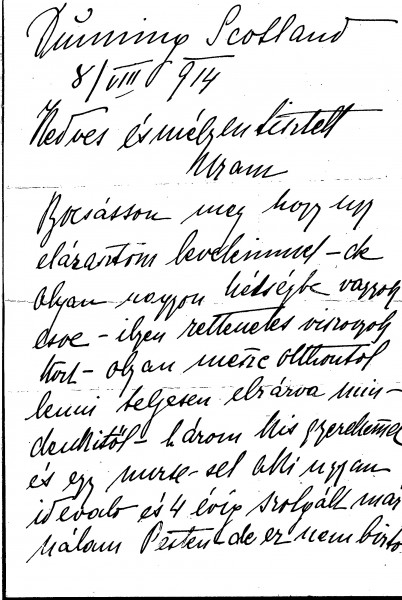 Dunning Scotland
8/VIII 914
Kedves és mélyen tisztelt
Uram
Bocsásson meg hogy úgy
elárasztom leveleimmel – de
olyan nagyon kétségbe vagyok
esve – ilyen rettenetes viszonyok
közt – olyan messze otthontól
lenni teljesen elzárva min-
denkitől – három kis gyerekemmel
és egy nurse-sel aki ugyan
idevaló és 4 évig szolgált már
nálam Pesten – de ez nem bizto